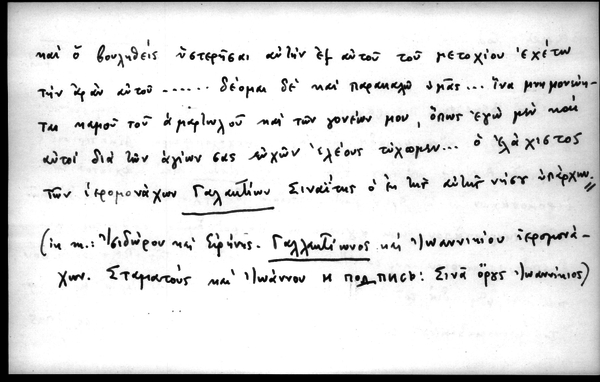 καὶ ὁ βουληθεὶς ὑστερῆσαι αὐτὴν ἐξ αὐτοῦ τοῦ μετοχίου ἐχέτω
τὴν ἀρὰν αὐτοῦ ------ δέομαι δὲ καὶ παρακαλῶ ὑμᾶς... ἵνα μνημονεύη-
ται κἀμοῦ τοῦ ἁμαρτωλοῦ καὶ τῶν γονέων μου, ὅπως ἐγὼ μὲν καὶ
αὐτοὶ διὰ τῶν ἁγίων σας εὐχῶν ἐλέους τύχωμεν... ὁ ἐλάχιστος
τῶν ἱερομονάχων Γαλακτίων Σιναΐτης ὁ ἐκ τῆς αὐτῆς νήσου ὑπάρχων.
(ἐκ π.: Ἰσιδώρου καὶ Εἰρήνης. Γαλλακτίωνος καὶ Ἰωαννικίου ἱερομονά-
χων. Σταματοῦς καὶ Ἰωάννου и подпись: Σινᾶ ὄρους Ἰωαννίκιος)